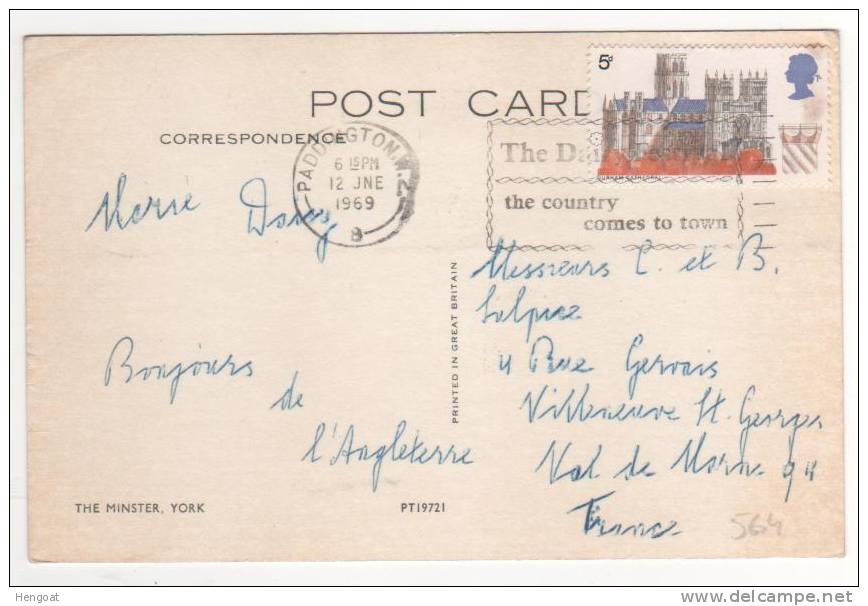 POST CARD
CORRESPONDENCE
PADDINGTON W.2
6 15PM
12 JNE
1969
8
5d
DURHAM CATHEDRAL
The
the country
comes to town
Bonjours
de
l'Angleterre
THE MINSTER, YORK
PT19721
PRINTED IN GREAT BRITAIN
Messieurs C. et B.
4 Rue Gervais
Villeneuve St. Georges
Val de Marne 94
France
564
Hengoat
www.delcampe.net